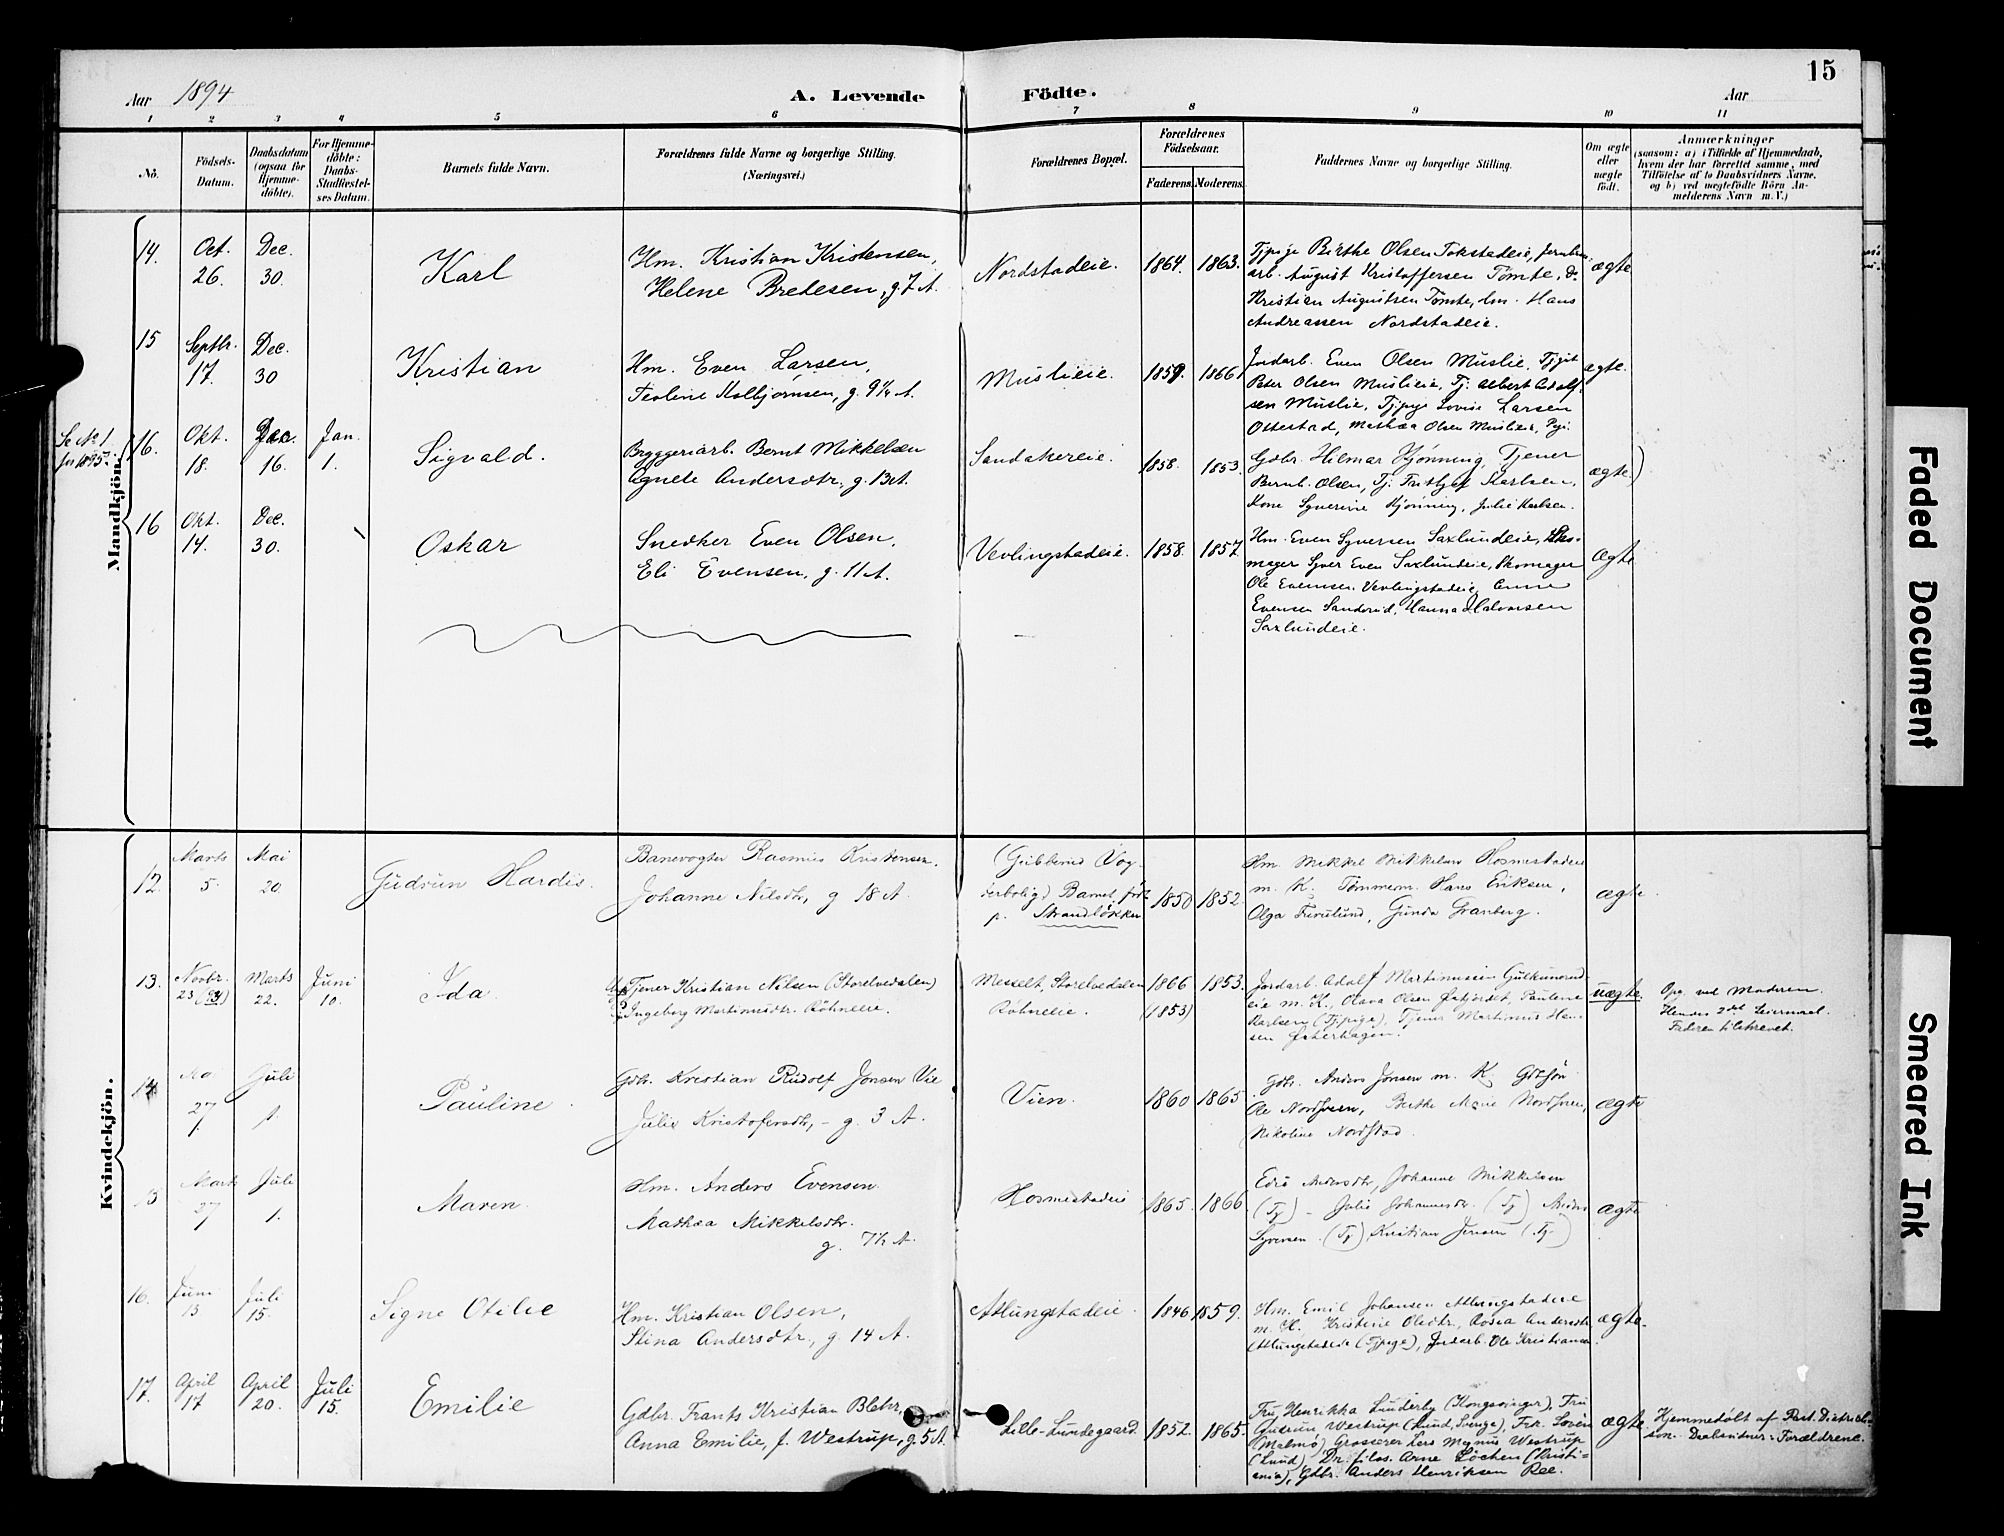 15
Aar 1894 A. Levende Födte. Aar
1 2 3 4 5 6 7 8 9 10 11
No.
Födsels-
Datum.
Daabsdatum
(ogsaa for
Hjemme-
döbte).
For Hjemme-
döbte:
Daabs-
Stadfæstel-
ses Datum.
Barnets fulde Navn.
Forældrenes fulde Navne og borgerlige Stilling.
(Næringsvei.)
Forældrenes Bopæl.
Forældrenes
Födselsaar.
Faderens. Moderens.
Faddernes Navne og borgerlige Stilling.
Om ægte
eller
uægte
født.
Anmærkninger
(saasom: a) i Tilfælde af Hjemmedaab,
hvem der har forrettet samme, med
Tilföielse af to Daabsvidners Navne,
og b) ved uægtefödte Börn An-
melderens Navn m. V.)
Mandkjön.
14. Oct. 26. Dec. 30. Karl
Hm. Kristian Kristensen,
Helene Bredesen, g. 7 A.
Nordstadeie. 1864. 1863.
Tjpige Birthe Olsen Tokstadeie,
arb. August Kristoffersen Tømte, do
Kristian Augustsen Tømte, Hm. Hans
Andreassen Nordstadeie.
ægte
15 Septbr. 17. Dec. 30 Kristian
Hm. Even Larsen,
Teoline Kolbjørnsen, g. 9¼ A.
Muslieie. 1859. 1866
Jordarb. Even Olsen Muslie,
Peter Olsen Muslieie, Tj. Albert Adolf-
sen Muslie, Tjpige Lovise Larsen
Ottestad, Mathea Olsen Muslieie,
ægte.
Se No 1 for 1895.
16. Okt. 18. Dec. 16. Jan. 1. Sigvald.
Bryggeriarb. Bernt Mikkelsen
Agnete Andersdtr, g. 13 A.
Sandakereie. 1858. 1853.
Gdbr. Hilmar Hjønning, Tjener
Bernh. Olsen, Tj. Fritjof Karlsen,
Kone Syverine Hjønning, Julie Karlsen.
ægte.)
16 Okt. 14. Dec. 30. Oskar
Snedker Even Olsen,
Eli Evensen, g. 11 A.
Vevlingstadeie. 1858. 1857
Hm. Even Syversen Saxlundeie, Sko-
mager Syver Even Saxlundeie, Skomager
Ole Evensen Vevlingstadeie, Anne
Evensen Sanderud, Hanna Halvorsen
Saxlundeie.
ægte
Kvindekjön.
12. Marts 5. Mai 20 Gudrun Hardis.
Banevogter Rasmus Kristensen.
Johanne Nilsdtr, g 18 A.
(Gubberud Vog-
terbolig) Barnet født
p. Strandløkken
1850 1852.
Hm. Mikkel Mikkelsen Hosmestadeie
m. K. Tømmerm. Hans Eriksen,
Olga Furulund, Gunda Granberg.
ægte.
13. Novbr. 23 (93) Marts 22. Juni 10. Ida.
Tjener Kristian Nilsen (Storelvedalen)
Ingeborg Martinusdtr. Röhneeie.
Messelt, Storelvedalen
Röhneeie.
1866 (1853) 1853.
Jordarb. Adolf Martinussen Gulkunerud-
eie m. K., Olava Olsen Østfjordet, Pauline
Karlsen (Tjpige), Tjener Martinus Han-
sen Østerhagen.
uægte.
Opg. ved Moderen.
Hendes 2det Leiermaal.
Faderen tilskrevet.
14 Mai 27 Juli 1. Pauline
Gdbr. Kristian Rudolf Jonsen Vie
Julie Kristofersdtr, - g. 3 A.
Vien. 1860 1865.
Gdbr. Anders Jonsen m. K.
Ole Nordhuen, Berthe Marie Nordhuen,
Nikoline Nordstad.
ægte
15 Marts 27 Juli 1. Maren.
Hm. Anders Evensen.
Mathea Mikkelsdtr.
g. 7½ A.
Hosmestadeie 1865. 1866
Andersdtr, Johanne Mikkelsen
(Tj) - Julie Johannesdtr. (Tj) Anders
Syversen. (Tj) Kristian Jensen (Tj)
ægte
16. Juni 13 Juli 15. Signe Otilie
Hm. Kristian Olsen,
Stina Andersdtr, g 14 A.
Atlungstadeie. 1846. 1859.
Hm. Emil Johansen Atlungstadeie
m. K. Kristine Olsdtr, Rosea Andersdtr
Atlungstadeie (Tjpige), Jordarb. Ole Kristiansen
ægte.
17. April 17 April 20. Juli 15. Emilie
Gdbr. Frants Kristian Blehr,
Anna Emilie, f. Westrup, g. 5 A.
Lille-Lundegaard. 1852. 1865.
Fru Henrikka Lunderby (Kongsvinger), Fru
Gudrun Westrup (Lund, Sverige), Frk. Lovén
(Malmö) Grosserer Lars Magnus Westrup
(Lund) Dr. filos. Arne Löchen (Kristi-
ania), Gdbr. Anders Henriksen Ree.
ægte
Hjemmedøbt af Past. Dietrichs-
son. Daabsvidner: Forældrene.
Faded Document
Smeared Ink